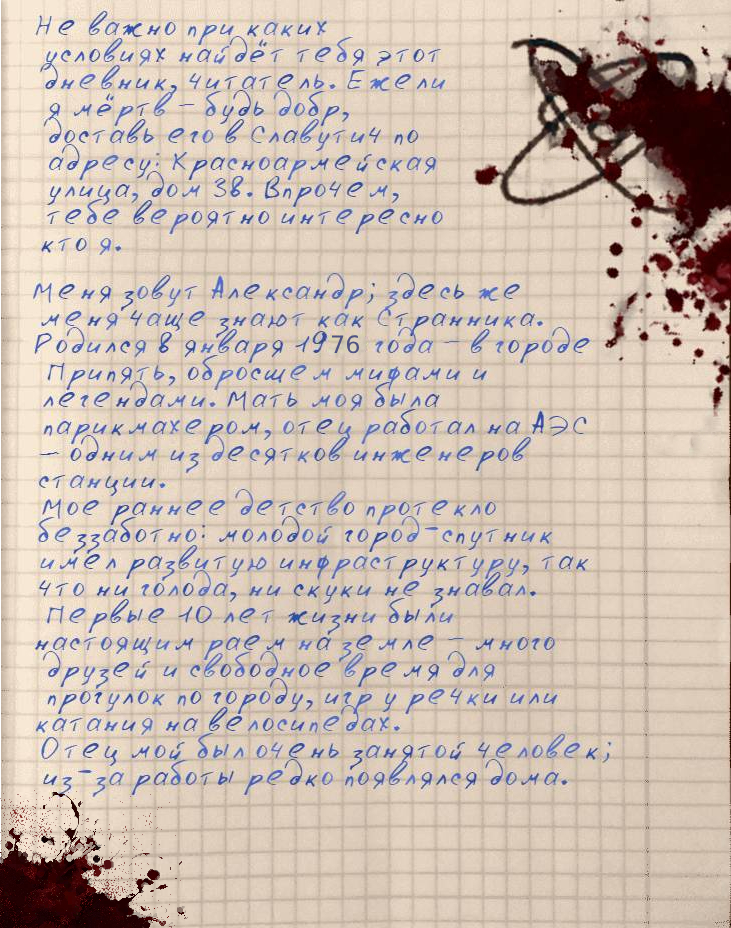 Не важно при каких
условиях найдёт тебя этот
дневник, читатель. Ежели
я мёртв – будь добр,
доставь его в Славутич по
адресу: Красноармейская
улица, дом 3в. Впрочем,
тебе вероятно интересно
кто я.
Меня зовут Александр; здесь же
меня чаще знают как Странника.
Родился 8 января 1976 года – в городе
Припять, обросшем мифами и
легендами. Мать моя была
парикмахером, отец работал на АЭС
– одним из десятков инженеров
станции.
Мое раннее детство протекло
беззаботно: молодой город-спутник
имел развитую инфраструктуру, так
что ни голода, ни скуки не знавал.
Первые 10 лет жизни были
настоящим раем на земле – много
друзей и свободное время для
прогулок по городу, игр у речки или
катания на велосипедах.
Отец мой был очень занятой человек;
из-за работы редко появлялся дома.